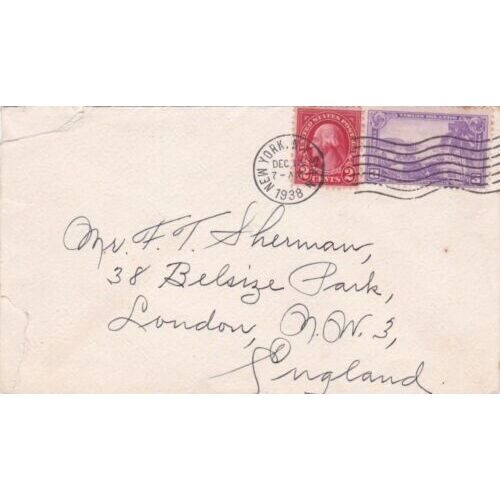 UNITED STATES POSTAGE
2 CENTS 2
VIRGIN ISLANDS
NEW YORK, N.Y.
DEC
7-
1938
Mr. F. T. Sherman,
38 Belsize Park,
London, N.W. 3,
England.